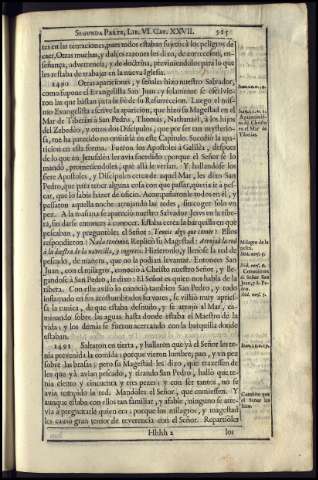 SEGUNDA PARTE, LIB. VI. CAP. XXVII. 525
tes en las tentaciones, pues todos estaban sujetos à los peligros de
caer. Otras muchas, y dulces razones les dixo, de correccion, en-
señança, advertencia, y de doctrina, previniendolos para lo que
les restaba de trabajar en la nueva Iglesia.
1490 Otras apariciones, y señales hizo nuestro Salvador,
como supone el Evangelista San Juan; y solamente se escrivie-
ron las que bastan para la fè de su Resurreccion. Luego el mis-
mo Evangelista escrive la aparicion, que hizo su Magestad en el
Mar de Tiberias à San Pedro, Thomàs, Nathanaèl, à los hijos
del Zebedèo, y otros dos Discipulos; que por ser tan mysterio-
sa, me ha parecido no omitirla en este Capitulo. Sucediò la apa-
ricion en esta forma. Fueron los Apostoles à Galilèa, despues
de lo que en Jerusalèn les avia sucedido: porque el Señor se lo
mandò, prometiendoles, que allà le verian. Y hallandose los
siete Apostoles, y Discipulos cerca de aquel Mar, les dixo San
Pedro, que para tener alguna cosa con que passar, queria ir à pes-
car, que lo sabia hacer de oficio. Acompañaronle todos en el, y
passaron aquella noche arrojando las redes, sin coger solo un
pez. A la mañana se apareciò nuestro Salvador Jesus en la ribe-
ra, sin darse entonces à conocer. Estaba cerca la barquilla en que
pescaban, y preguntòles el Señor: Teneis algo que comer? Ellos
respondieron: Nada tenemos. Replicò su Magestad: Arrojad la red
à la diestra de la navecilla, y cogereis. Hizieronlo, y llenòse la red de
pescado, de manera, que no la podian levantar. Entonces San
Juan, con el milagro, conociò à Christo nuestro Señor, y lle-
gandose à San Pedro, le dixo: El Señor es quien nos habla de la
ribera. Con este aviso lo conociò tambien San Pedro, y todo
inflamado en sus acostumbrados fervores, se vistiò muy aprie-
sa la tunica, de que estaba desnudo, y se arrojò al Mar, ca-
minando sobre las aguas hasta donde estaba el Maestro de la
vida; y los demàs se fueron acercando con la barquilla donde
estaban.
1491 Saltaron en tierra, y hallaron que yà el Señor les te-
nia prevenida la comida: porque vieron lumbre, pan, y un pez
sobre las brasas; pero su Magestad les dixo, que traxessen de
los que yà avian pescado, y tirando San Pedro, hallò que te-
nia ciento y cincuenta y tres peces; y con ser tantos, no se
avia rompido la red. Mandòles el Señor, que comiessen. Y
aunque estaba con ellos tan familiar, y afable, ninguno se atre-
via à preguntarle quien era: porque los milagros, y magestad
les causò gran temor de reverencia con el Señor. Repartiòles
Hhhh 2 los
Aparicion
de Christo
en el Mar de
Tiberias.
Milagro de la
pesca.
Conocieron
al Señor San
Juan, y S. Pe-
dro.
Combite que
el Señor les
hizo.